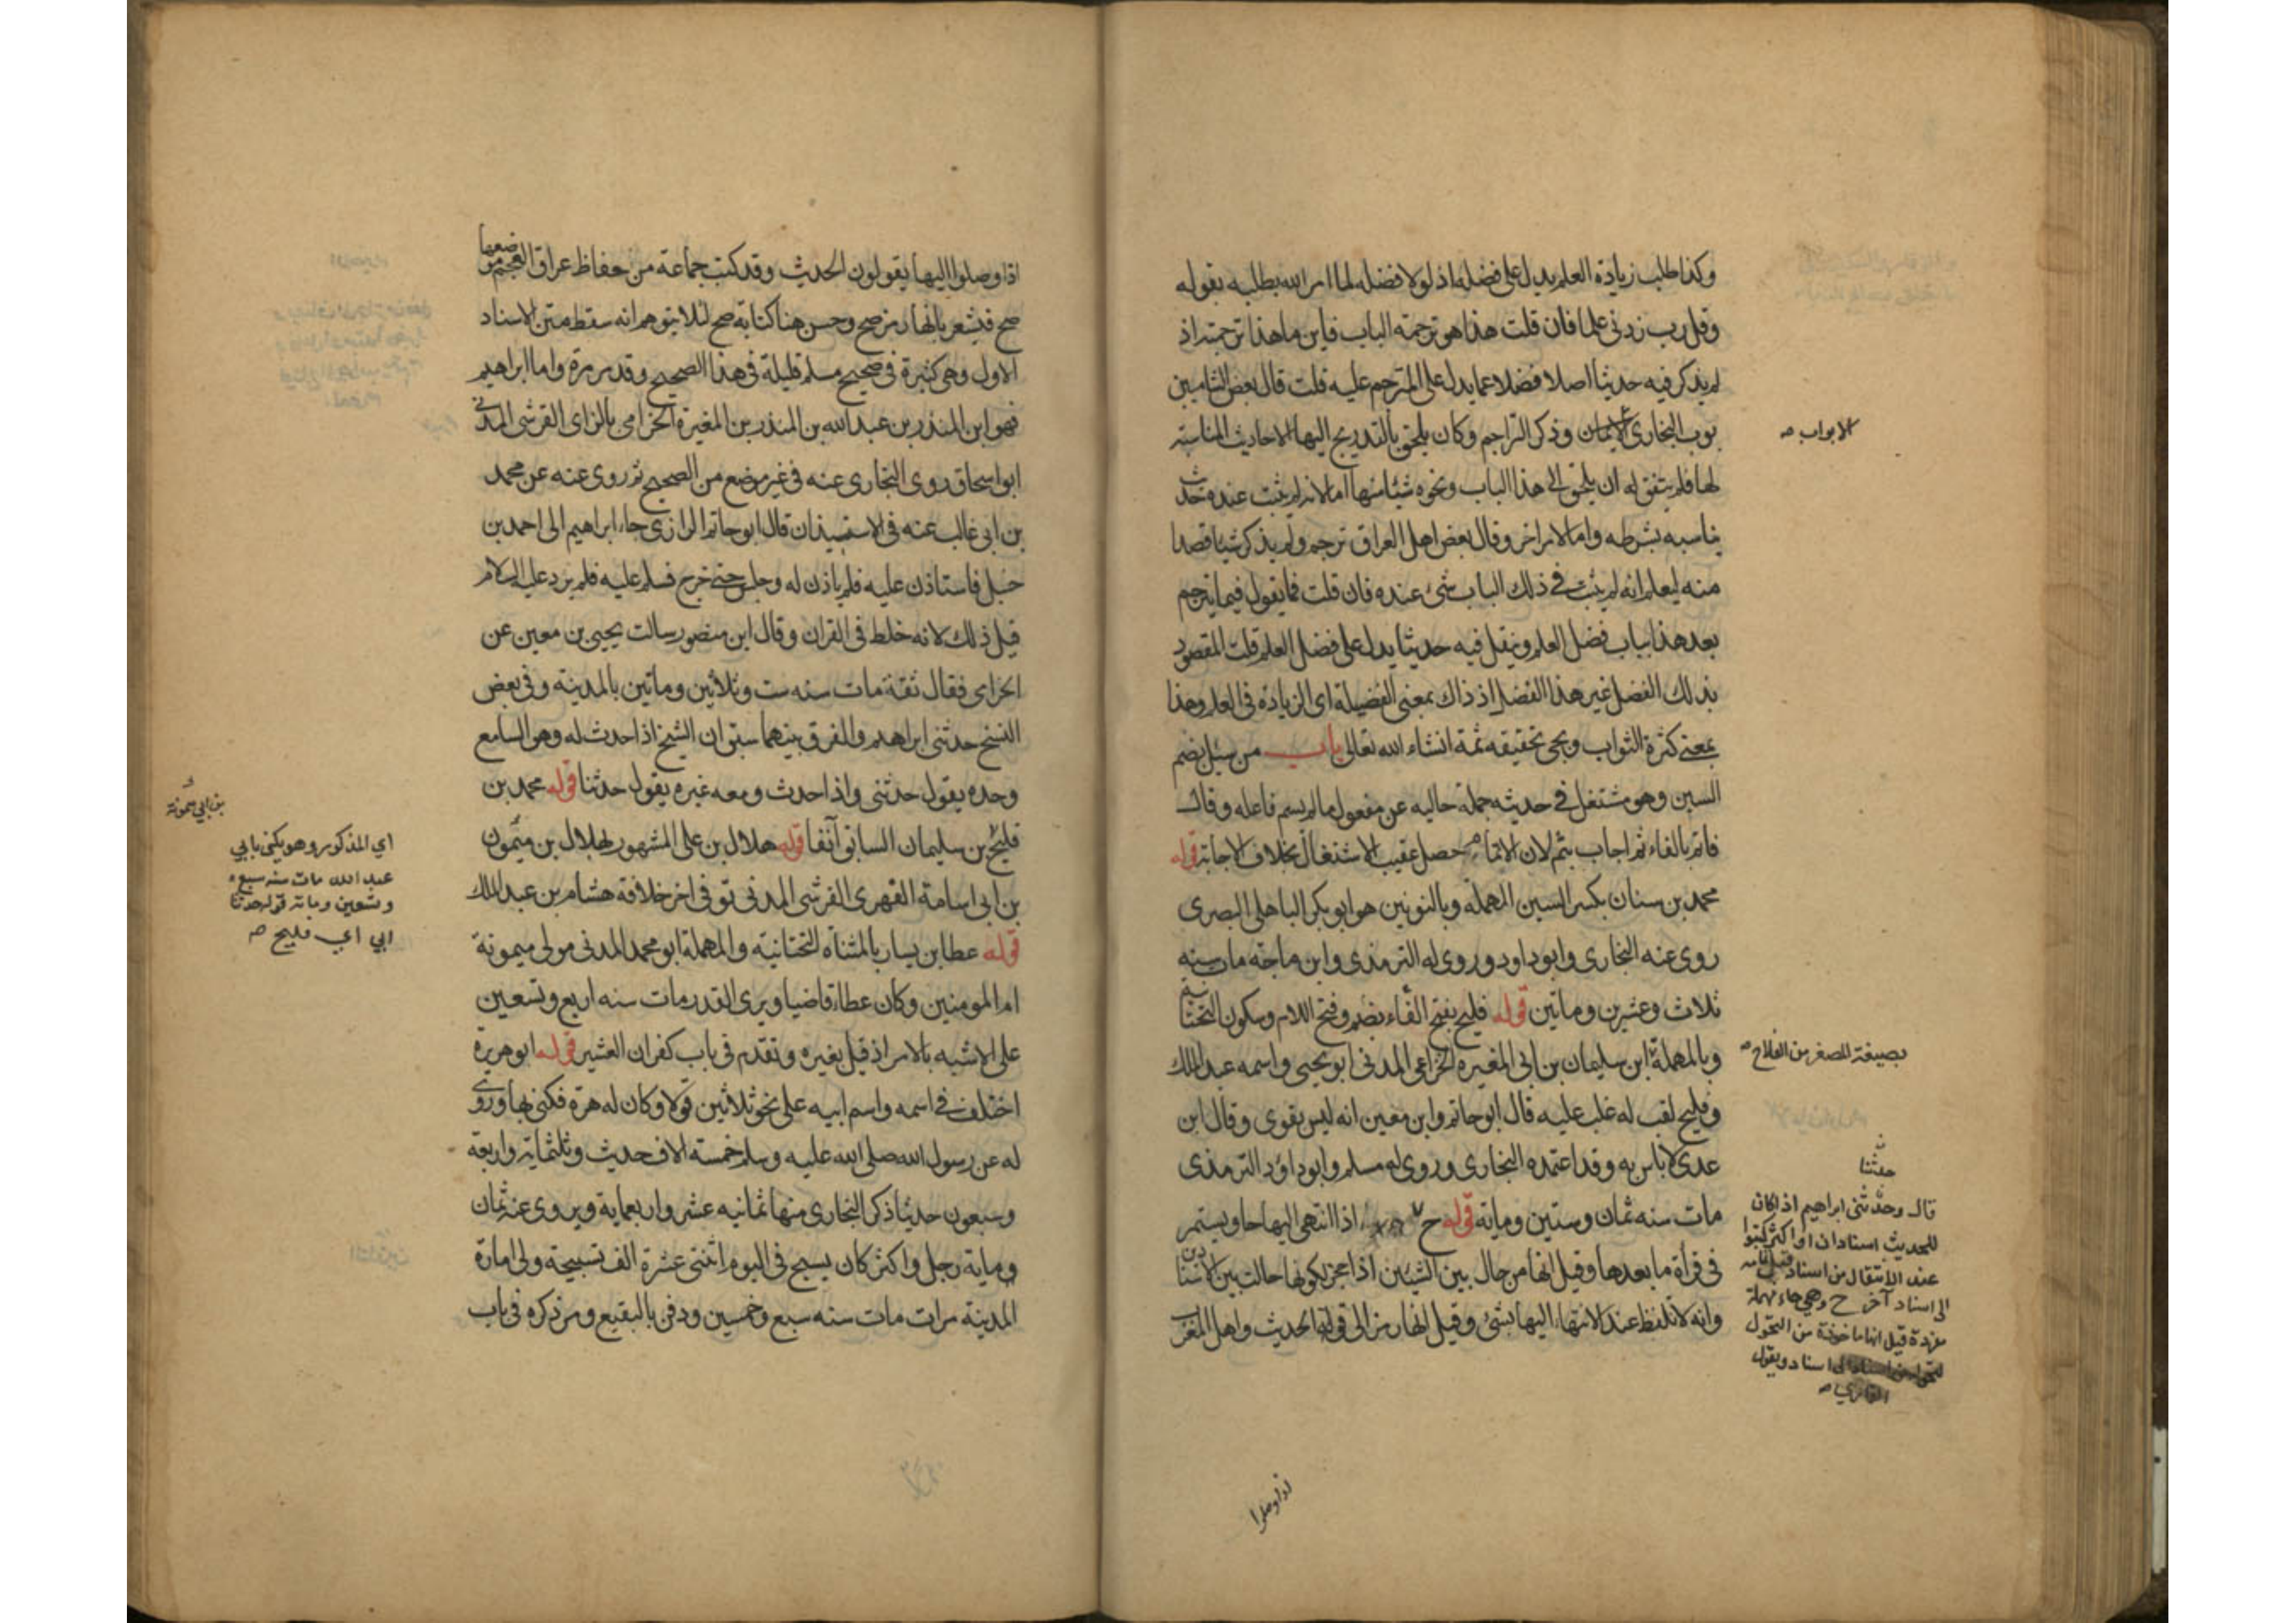 وكذا طلب زيادة العلم يدل على فضله اذ لولا فضله لما امر الله بطلبه بقوله
وقل رب زدنى علما فان قلت هذا هو ترجمة الباب فاين ما هذا ترجمته اذ
لم يذكر فيه حديثا اصلا فضلا عما يدل على المترجم عليه قلت قال بعض الشاميين
بوب البخارى وذكر التراجم وكان يلحق بالتدريج اليها الاحاديث المناسبة
الابواب صح
لها فلم يتفق له ان يلحق الى هذا الباب ونحوه شيئا منها اما لانه لم يثبت عنده حديث
يناسبه بشرطه واما لامر اخر وقال بعض اهل العراق ترجم ولم يذكر شيئا قصدا
منه ليعلم انه لم يثبت فى ذلك الباب شئ عنده فان قلت فما يقول فيما يترجم
بعد هذا بباب فضل العلم وينقل فيه حديثا يدل على فضل العلم قلت المقصود
بذلك الفضل غير هذا الفضل اذ ذاك بمعنى الفضيلة اى الزيادة فى العلم وهذا
بمعنى كثرة الثواب ويجى تحقيقه ثمة انشاء الله تعالى باب من سئل بضم
السين وهو مشتغل فى حديثه جملة حاليه عن مفعول ما لم يسم فاعله وقال
فاتم بالفاء ثم اجاب بثم لان الاتمام حصل عقيب الاشتغال بخلاف الاجابة قوله
محمد بن سنان بكسر السين المهملة وبالنونين هو ابو بكر الباهلى البصرى
روى عنه البخارى وابو داود وروى له الترمذى وابن ماجة مات سنه
ثلاث وعشرين ومأتين قوله فليح بفتح الفاء بضم وفتح اللام وسكون التحتانية
وبالمهملة ابن سليمان بن ابى المغيره الخزاعى المدنى ابو يحيى واسمه عبد الملك
بصيغة المصغر من الفلاح صح
وفليح لقب له غلب عليه قال ابو حاتم وابن معين انه ليس بقوى وقال ابن
عدى لا باس به وقد اعتمده البخارى وروى له مسلم وابو داود الترمذى
مات سنه ثمان وستين ومايه قوله ح اذا انتهى اليها حا ويستمر
فى قرأة ما بعدها وقيل انها من حال بين الشيئين اذا حجز لكونها حالت بين الاسنادين
وانه لا تلفظ عند الانتهاء اليها بشئ وقيل انها رمز الى قوله الحديث واهل المغرب
حدثنا
قال وحدثنى ابراهيم اذا كان
للحديث اسنادان او اكثر كتبوا
عند الانتقال من اسناد
الى اسناد آخر ح وهى حاء مهملة
مفردة قيل انها ماخوذة من التحول
الى اسناد ويقول
القارى صح
اذا وصلوا
اذا وصلوا اليها يقولون الحديث وقد كتب جماعة من حفاظ عراق العجم موضعها
صح فيشعر بانها رمز صح وحسن هنا كتابة صح لئلا يتوهم انه سقط متن الاسناد
الاول وهى كثيرة فى صحيح مسلم قليلة فى هذا الصحيح وقد مر مرة واما ابراهيم
فهو ابن المنذر بن عبد الله بن المنذر بن المغيرة الحزامى بالزاى القرشى المدنى
ابو اسحاق روى البخارى عنه فى غير موضع من الصحيح ثم روى عنه عن محمد
بن ابى غالب عنه فى الاستيذان قال ابو حاتم الرازى جاء ابراهيم الى احمد بن
حنبل فاستاذن عليه فلم ياذن له وجلس حتى خرج فسلم عليه فلم يرد عليه السلام
قيل ذلك لانه خلط فى القران وقال ابن منصور سالت يحيى بن معين عن
الحزامى فقال ثقة مات سنه ست وثلاثين ومأتين بالمدينة وفى بعض
النسخ حدثنى ابراهيم والفرق بينهما سبق ان الشيخ اذا حدث له وهو السامع
وحده يقول حدثنى واذا حدث ومعه غيره يقول حدثنا قوله محمد بن
فليح بن سليمان السابق آنفا قوله هلال بن على المشهور بهلال بن ميمون
بن ابى ميمونة
بن ابى اسامة الفهرى القرشى المدنى توفى اخر خلافة هشام بن عبد الملك
اي المذكور وهو يكنى بابي
عبد الله مات سنه سبع
وتسعين ومائة قوله حدثنا
ابي اي فليح صح
قوله عطا بن يسار بالمثناة التحتانية والمهملة ابو محمد المدنى مولى ميمونة
ام المومنين وكان عطاء قاضيا ويرى القدر مات سنه اربع وتسعين
على الاشبه بالامر اذ قيل بغيره وتقدم فى باب كفران العشير قوله ابو هريرة
اختلف فى اسمه واسم ابيه على نحو ثلاثين قولا وكان له هرة فكنى بها وروى
له عن رسول الله صلى الله عليه وسلم خمسة الاف حديث وثلثماية واربعة
وسبعون حديثا ذكر البخارى منها ثمانيه عشر واربعماية ويروى عنه ثمان
وماية رجل واكثر كان يسبح فى اليوم اثنتى عشرة الف تسبيحة ولى امارة
المدينة مرات مات سنه سبع وخمسين ودفن بالبقيع ومر ذكره فى باب